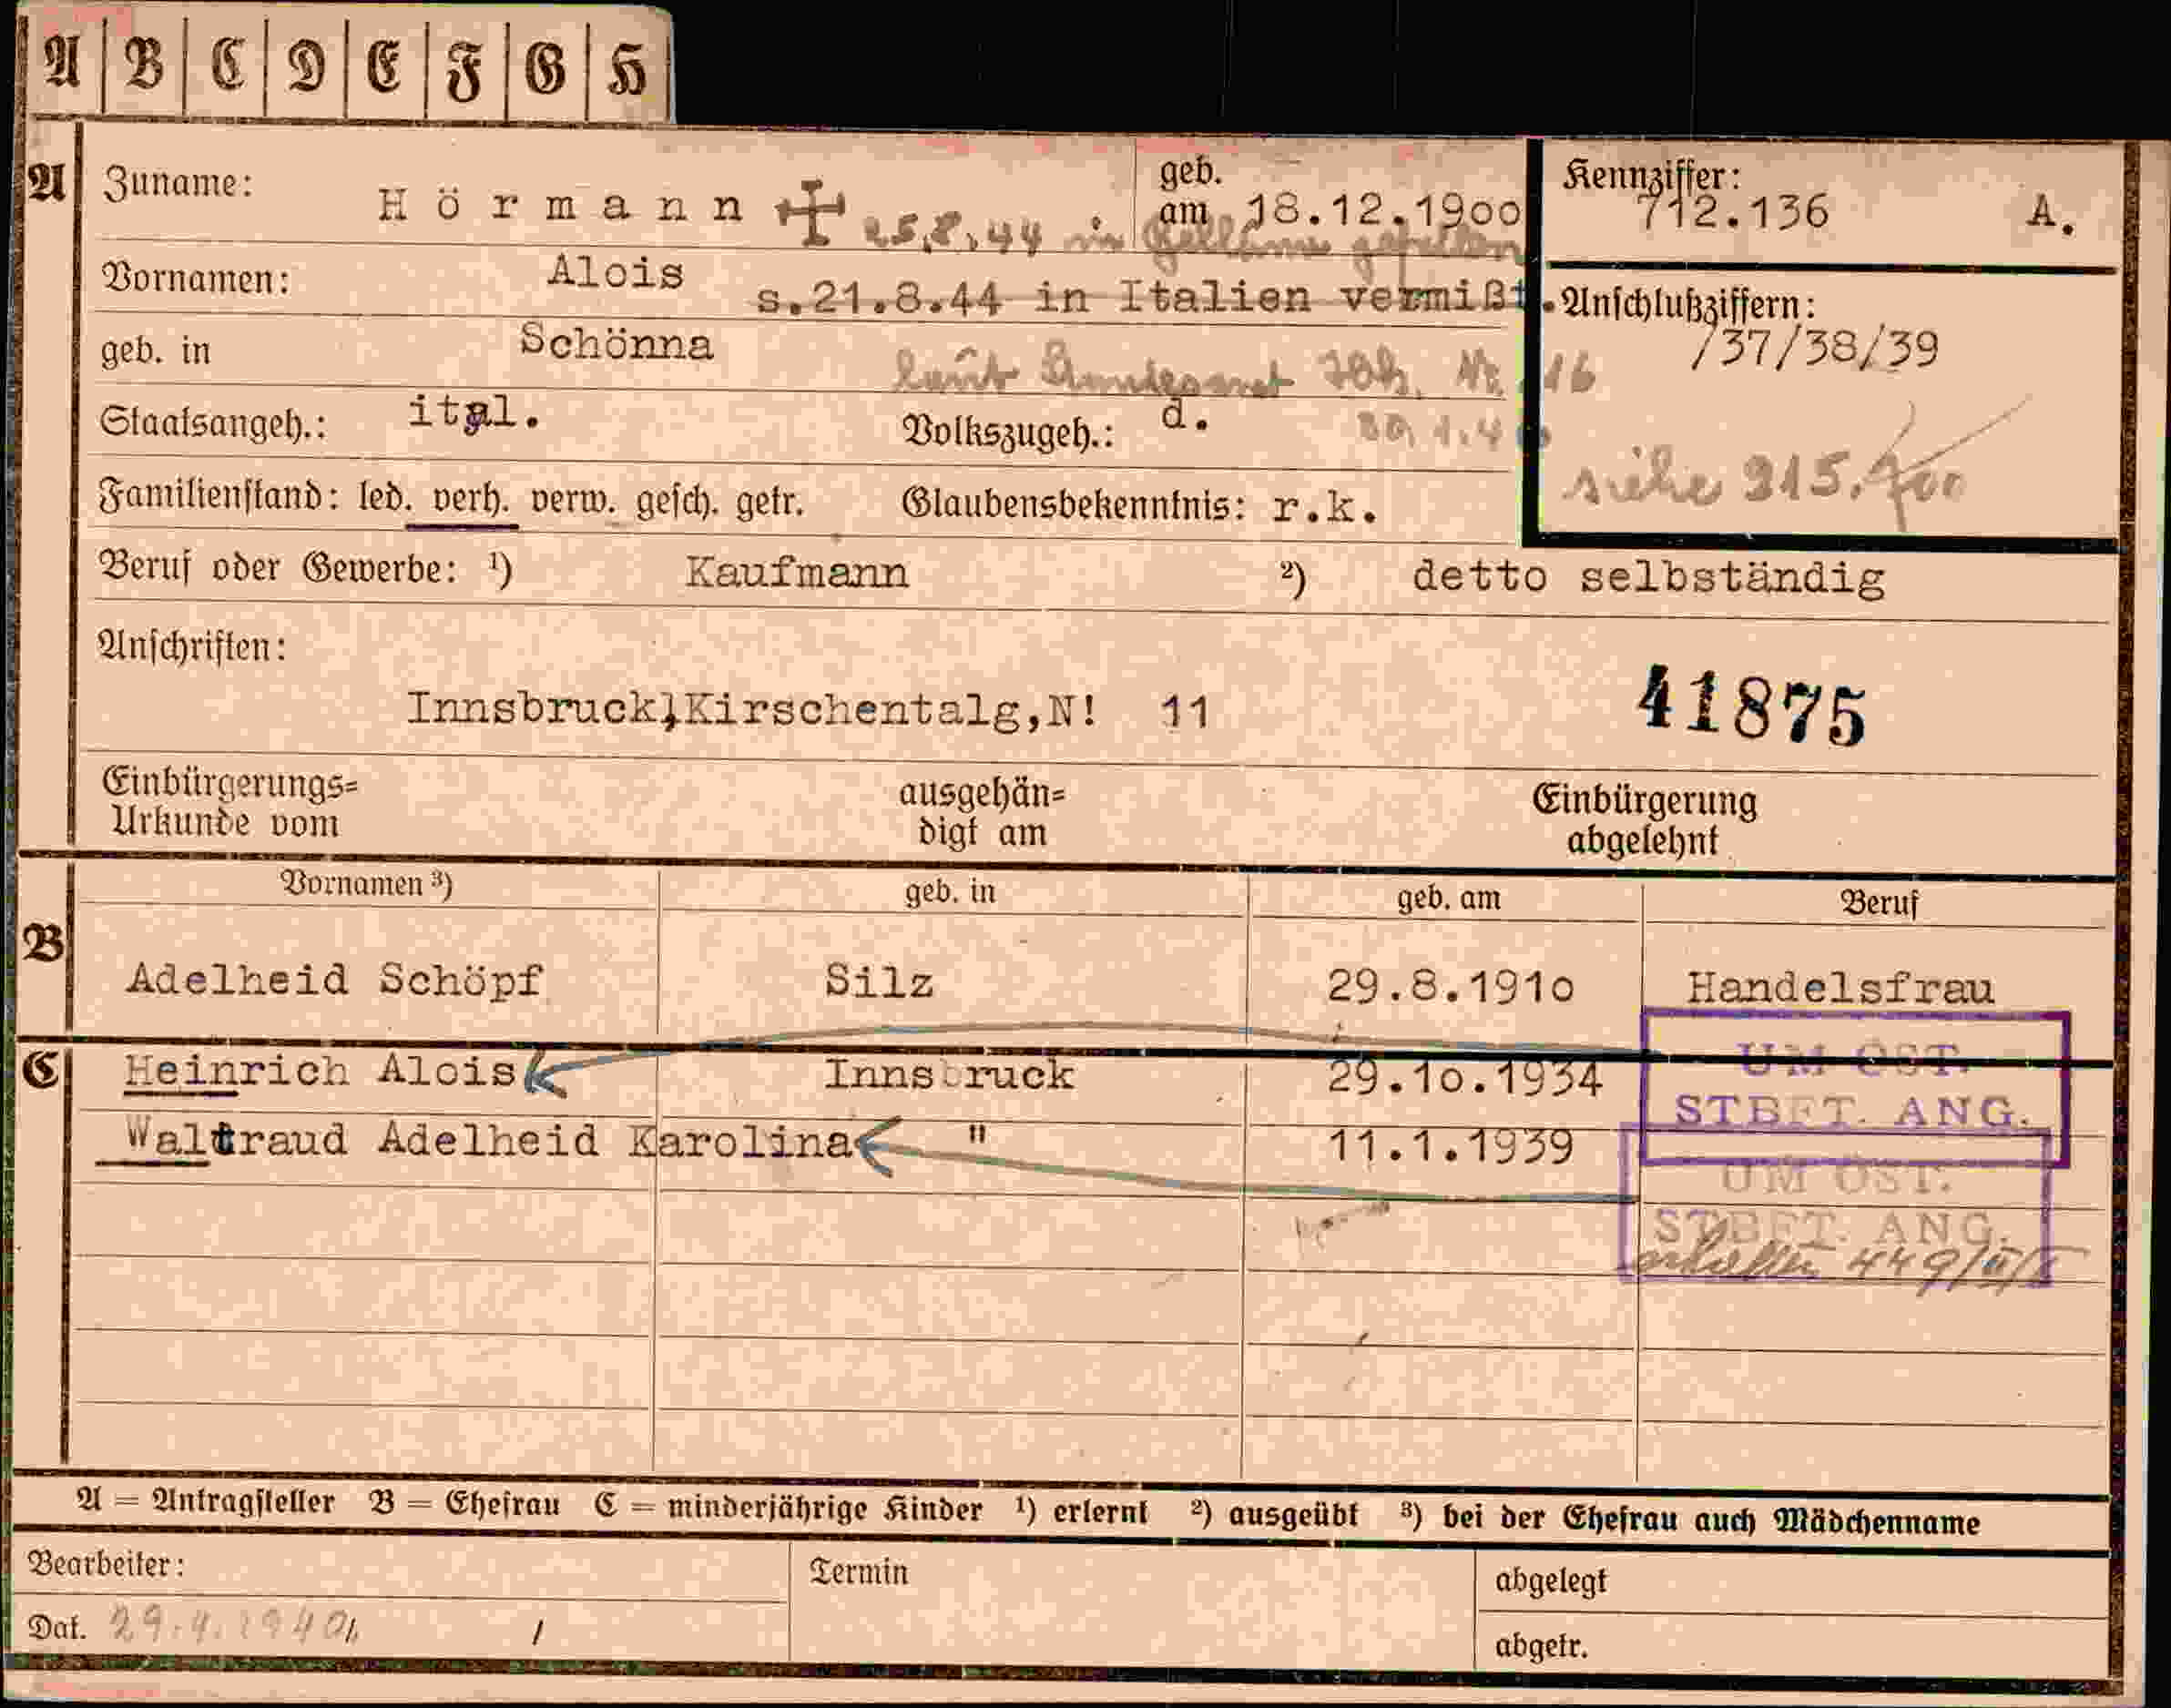 A B C D E F G H
A Zuname: Hörmann geb. am 18.12.1900 Kennziffer: 712.136 A.
25.8.44 in gefallen
Vornamen: Alois s.21.8.44 in Italien vermißt. Anschlußziffern:
/37/38/39
geb. in Schönna
laut Nr. 16
Staatsangeh.: ital. Volkszugeh.: d.
siehe 315.700
Familienstand: led. verh. verw. gesch. getr. Glaubensbekenntnis: r.k.
Beruf oder Gewerbe: ¹) Kaufmann ²) detto selbständig
Anschriften:
Innsbruck,Kirschentalg,N! 11 41875
Einbürgerungs= ausgehän= Einbürgerung
Urkunde vom digt am abgelehnt
Vornamen ³) geb. in geb. am Beruf
B
Adelheid Schöpf Silz 29.8.1910 Handelsfrau
UM ÖST.
C Heinrich Alois Innsbruck 29.10.1934
STBFT. ANG.
Waltraud Adelheid Karolina " 11.1.1939
UM ÖST.
STBFT. ANG.
erhalten 449/II/
A = Antragsteller B = Ehefrau C = minderjährige Kinder ¹) erlernt ²) ausgeübt ³) bei der Ehefrau auch Mädchenname
Bearbeiter: Termin abgelegt
Dat. 29.4.1940 / abgetr.